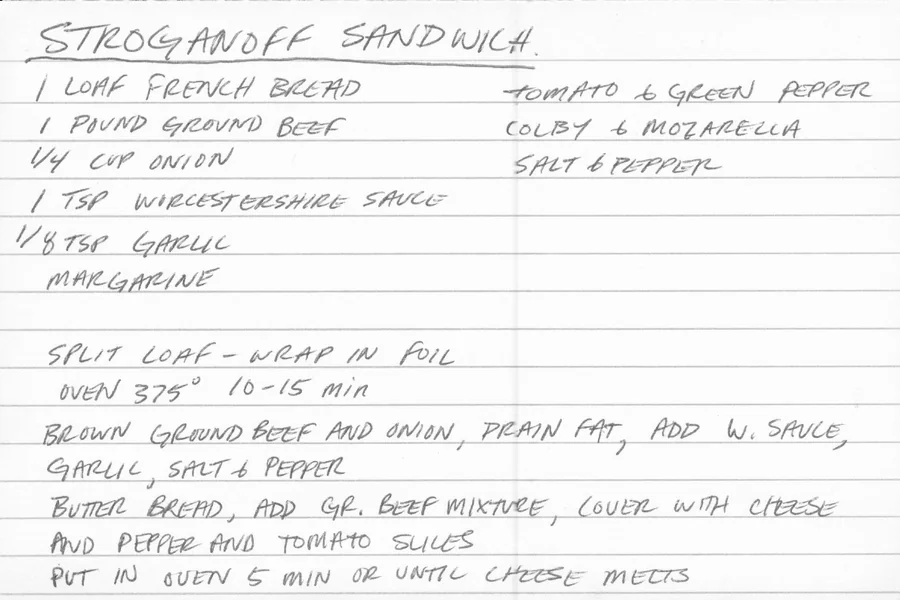 STROGANOFF SANDWICH.
1 LOAF FRENCH BREAD
1 POUND GROUND BEEF
1/4 CUP ONION
1 TSP WORCESTERSHIRE SAUCE
1/8 TSP GARLIC
MARGARINE
TOMATO & GREEN PEPPER
COLBY & MOZARELLA
SALT & PEPPER
SPLIT LOAF - WRAP IN FOIL
OVEN 375° 10-15 min
BROWN GROUND BEEF AND ONION, DRAIN FAT, ADD W. SAUCE,
GARLIC, SALT & PEPPER
BUTTER BREAD, ADD GR. BEEF MIXTURE, COVER WITH CHEESE
AND PEPPER AND TOMATO SLICES
PUT IN OVEN 5 MIN OR UNTIL CHEESE MELTS